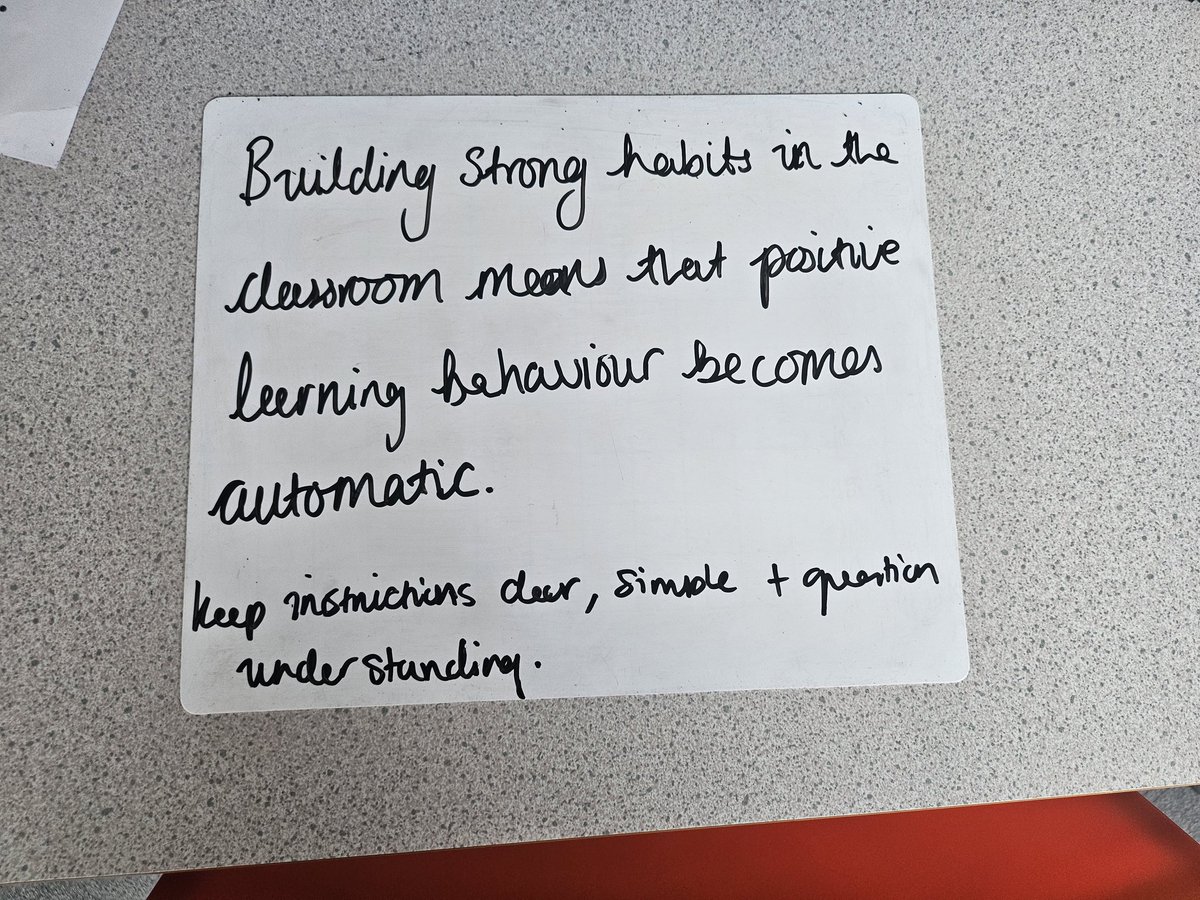 Building strong habits in the
classroom means that positive
learning behaviour becomes
automatic.
keep instructions clear, simple + question
understanding.